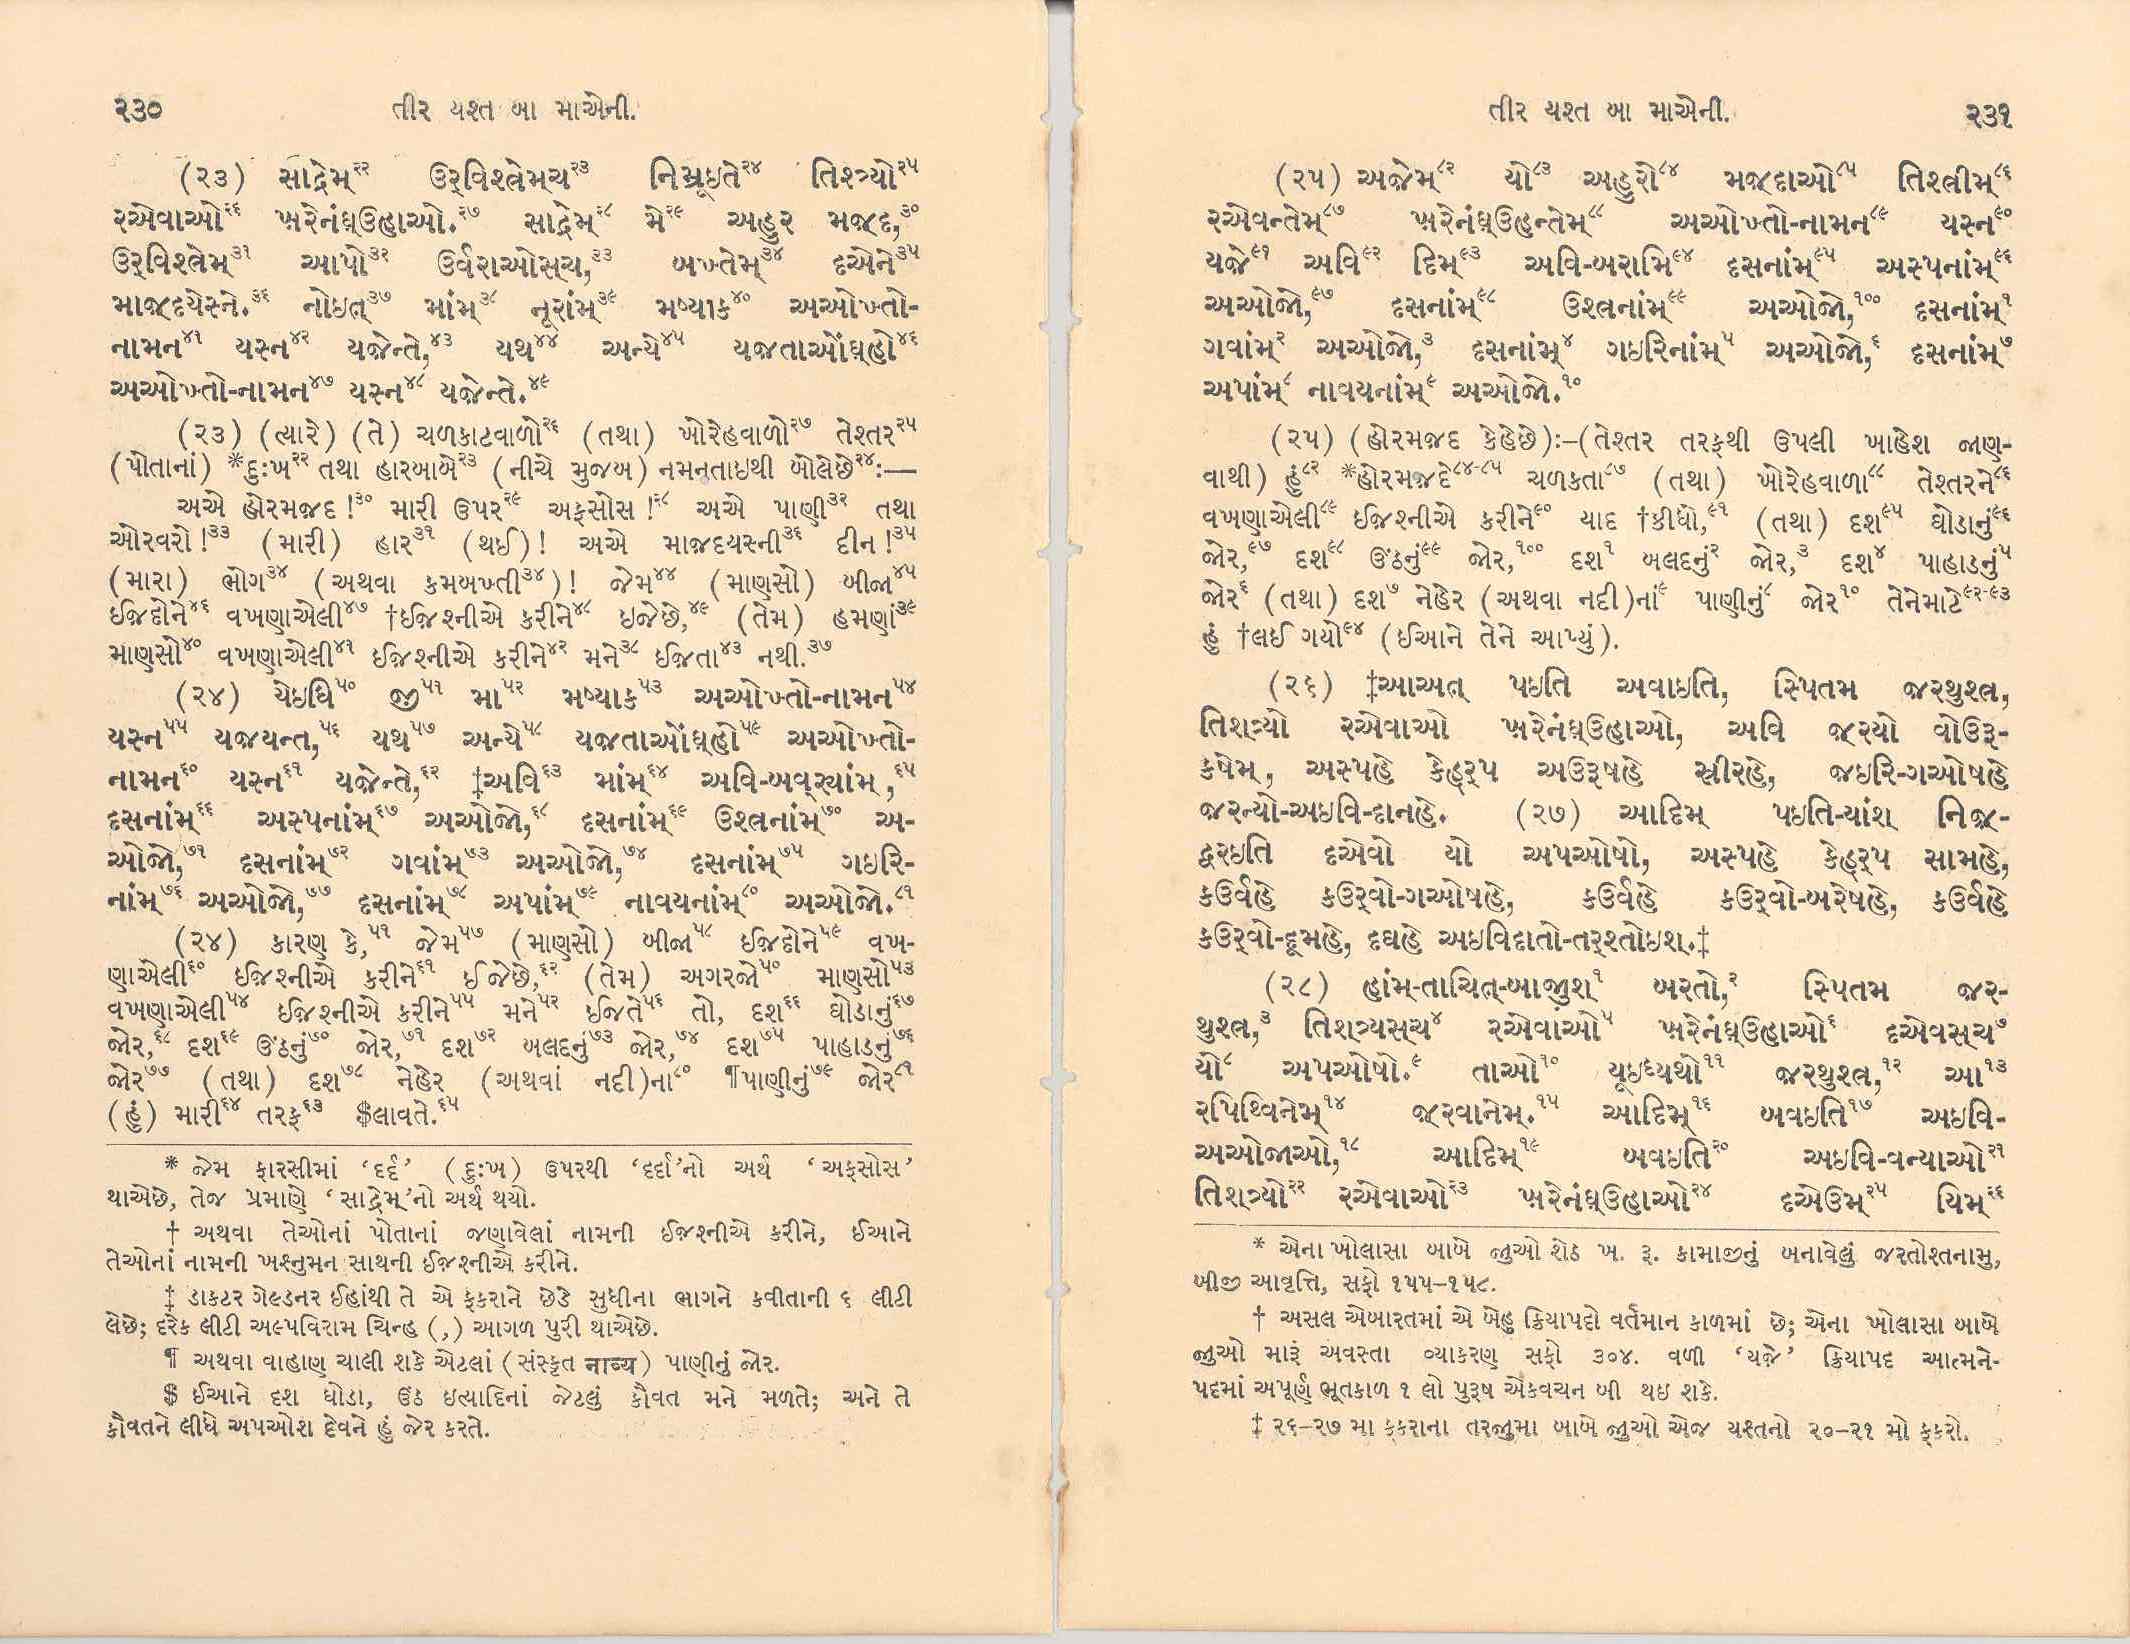 ૨૩૦
તીર યશ્ત બા માએની.
(૨૩) સાદ્રેમ્૨૨ ઉર્‌વિશ્ત્રેમ્‌ચ૨૩ નિમ્રૂઇતે૨૪ તિશ્ત્ર્યો૨૫
રએવાઓ૨૬ ખ઼રેનંઘ઼્ઉહાઓ.૨૭ સાદ્રેમ્૨૮ મે૨૯ અહુર મજ઼દ,૩૦
ઉર્‌વિશ્ત્રેમ્૩૧ આપો૩૨ ઉર્વરાઓસ્‌ચ,૩૩ બખ્તેમ્૩૪ દએને૩૫
માજ઼્દયેસ્ને.૩૬ નોઇત્૩૭ માંમ્૩૮ નૂરાંમ્૩૯ મષ્યાક૪૦ અઓખ્તો-
નામન૪૧ યસ્ન૪૨ યજ઼ેન્તે,૪૩ યથ૪૪ અન્યે૪૫ યજ઼તાઓંઘ઼્હો૪૬
અઓખ્તો-નામન૪૭ યસ્ન૪૮ યજ઼ેન્તે.૪૯
(૨૩) (ત્યારે) (તે) ચળકાટવાળો૨૬ (તથા) ખોરેહવાળો૨૭ તેશ્તર૨૫
(પોતાનાં) *દુઃખ૨૨ તથા હારબાબે૨૩ (નીચે મુજબ) નમનતાઇથી બોલેછે૨૪:—
અએ હોરમજ઼દ !૩૦ મારી ઉપર૨૯ અફસોસ !૨૮ અએ પાણી૩૨ તથા
ઓરવરો !૩૩ (મારી) હાર૩૧ (થઈ) ! અએ માજ઼દયસ્ની૩૬ દીન !૩૫
(મારા) ભોગ૩૪ (અથવા કમબખ્તી૩૪) ! જેમ૪૪ (માણસો) બીજા૪૫
ઈજ઼દોને૪૬ વખણાએલી૪૭ †ઈજ઼શ્નીએ કરીને૪૮ ઇજેછે,૪૯ (તેમ) હમણાં૩૯
માણસો૪૦ વખણાએલી૪૧ ઈજ઼શ્નીએ કરીને૪૨ મને૩૮ ઈજ઼તા૪૩ નથી.૩૭
(૨૪) યેઇધિ૫૦ જી૫૧ મા૫૨ મષ્યાક૫૩ અઓખ્તો-નામન૫૪
યસ્ન૫૫ યજ઼યન્ત,૫૬ યથ૫૭ અન્યે૫૮ યજ઼તાઓંઘ઼્હો૫૯ અઓખ્તો-
નામન૬૦ યસ્ન૬૧ યજ઼ેન્તે,૬૨ ‡અવિ૬૩ માંમ્૬૪ અવિ-બવ્‌ર્યાંમ્,૬૫
દસનાંમ્૬૬ અસ્પનાંમ્૬૭ અઓજો,૬૮ દસનાંમ્૬૯ ઉશ્ત્રનાંમ્૭૦ અ-
ઓજો,૭૧ દસનાંમ્૭૨ ગવાંમ્૭૩ અઓજો,૭૪ દસનાંમ્૭૫ ગઇરિ-
નાંમ્૭૬ અઓજો,૭૭ દસનાંમ્૭૮ અપાંમ્૭૯ નાવયનાંમ્૮૦ અઓજો.૮૧
(૨૪) કારણ કે,૫૧ જેમ૫૭ (માણસો) બીજા૫૮ ઈજ઼દોને૫૯ વખ-
ણાએલી૬૦ ઈજ઼શ્નીએ કરીને૬૧ ઈજેછે,૬૨ (તેમ) અગરજો૫૦ માણસો૫૩
વખણાએલી૫૪ ઈજ઼શ્નીએ કરીને૫૫ મને૫૨ ઈજતે૫૬ તો, દશ૬૬ ઘોડાનું૬૭
જોર,૬૮ દશ૬૯ ઊંઠનું૭૦ જોર,૭૧ દશ૭૨ બલદનું૭૩ જોર,૭૪ દશ૭૫ પાહાડનું૭૬
જોર૭૭ (તથા) દશ૭૮ નેહેર (અથવાં નદી)ના૮૦ ¶પાણીનું૭૯ જોર૮૧
(હું) મારી૬૪ તરફ૬૩ $લાવતે.૬૫
* જેમ ફારસીમાં ‘દર્દ’ (દુઃખ) ઉપરથી ‘દર્દા’નો અર્થ ‘અફસોસ’
થાએછે, તેજ પ્રમાણે ‘સાદ્રેમ્’નો અર્થ થયો.
† અથવા તેઓનાં પોતાનાં જણાવેલાં નામની ઈજ઼શ્નીએ કરીને, ઈઆને
તેઓનાં નામની ખશ્નુમન સાથની ઈજ઼શ્નીએ કરીને.
‡ ડાકટર ગેલ્ડનર ઈહાંથી તે એ ફકરાને છેડે સુધીના ભાગને કવીતાની ૬ લીટી
લેછે; દરેક લીટી અલ્પવિરામ ચિન્હ (,) આગળ પુરી થાએછે.
¶ અથવા વાહાણ ચાલી શકે એટલાં (સંસ્કૃત नाव्य) પાણીનું જોર.
$ ઈઆને દશ ઘોડા, ઊંઠ ઇત્યાદિનાં જેટલું કૌવત મને મળતે; અને તે
કૌવતને લીધે અપઓશ દેવને હું જેર કરતે.
તીર યશ્ત બા માએની.
૨૩૧
(૨૫) અજ઼ેમ્૮૨ યો૮૩ અહુરો૮૪ મજ઼દાઓ૮૫ તિશ્ત્રીમ્૮૬
રએવન્તેમ્૮૭ ખ઼રેનંઘ઼્ઉહન્તેમ્૮૮ અઓખ્તો-નામન૮૯ યસ્ન૯૦
યજ઼ે૯૧ અવિ૯૨ દિમ્૯૩ અવિ-બરામિ૯૪ દસનાંમ્૯૫ અસ્પનાંમ્૯૬
અઓજો,૯૭ દસનાંમ્૯૮ ઉશ્ત્રનાંમ્૯૯ અઓજો,૧૦૦ દસનાંમ્૧
ગવાંમ્૨ અઓજો,૩ દસનાંમ્૪ ગઇરિનાંમ્૫ અઓજો,૬ દસનાંમ્૭
અપાંમ્૮ નાવયનાંમ્૯ અઓજો.૧૦
(૨૫) (હોરમજ઼દ કેહેછે):–(તેશ્તર તરફથી ઉપલી ખાહેશ જાણ-
વાથી) હું૮૨ *હોરમજ઼દે૮૪-૮૫ ચળકતા૮૭ (તથા) ખોરેહવાળા૮૮ તેશ્તરને૮૬
વખણાએલી૮૯ ઈજ઼શ્નીએ કરીને૯૦ યાદ †કીધો,૯૧ (તથા) દશ૯૫ ઘોડાનું૯૬
જોર,૯૭ દશ૯૮ ઊંઠનું૯૯ જોર,૧૦૦ દશ૧ બલદનું૨ જોર,૩ દશ૪ પાહાડનું૫
જોર૬ (તથા) દશ૭ નેહેર (અથવા નદી)નાં૯ પાણીનું૮ જોર૧૦ તેનેમાટે૯૨-૯૩
હું †લઈ ગયો૯૪ (ઈઆને તેને આપ્યું).
(૨૬) ‡આઅત્ પઇતિ અવાઇતિ, સ્પિતમ જ઼રથુશ્ત્ર,
તિશ્ત્ર્યો રએવાઓ ખ઼રેનંઘ઼્ઉહાઓ, અવિ જ઼્રયો વોઉરૂ-
કષેમ્, અસ્પહે કેહ્ર્‌પ અઉરૂષહે સ્રીરહે, જ઼ઇરિ-ગઓષહે
જ઼રન્યો-અઇવિ-દાનહે. (૨૭) આદિમ્ પઇતિ-યાંશ્ નિજ઼્-
દ્વરઇતિ દએવો યો અપઓષો, અસ્પહે કેહ્ર્‌પ સામહે,
કઉર્વહે કઉર્‌વો-ગઓષહે, કઉર્વહે કઉર્‌વો-બરેષહે, કઉર્વહે
કઉર્‌વો-દૂમહે, દઘહે અઇવિદાતો-તર્‌શ્તોઇશ્.‡
(૨૮) હાંમ્-તાચિત્-બાજુશ્૧ બરતો,૨ સ્પિતમ જ઼ર-
થુશ્ત્ર,૩ તિશ્ત્ર્યસ્‌ચ૪ રએવાંઓ૫ ખ઼રેનંઘ઼્ઉહાઓ૬ દએવસ્‌ચ૭
યો૮ અપઓષો.૯ તાઓ૧૦ યૂઇધ્યથો૧૧ જ઼રથુશ્ત્ર,૧૨ આ૧૩
રપિથ્વિનેમ્૧૪ જ઼્રવાનેમ્.૧૫ આદિમ્૧૬ બવઇતિ૧૭ અઇવિ-
અઓજાઓ,૧૮ આદિમ્૧૯ બવઇતિ૨૦ અઇવિ-વન્યાઓ૨૧
તિશ્ત્ર્યો૨૨ રએવાઓ૨૩ ખ઼રેનંઘ઼્ઉહાઓ૨૪ દએઉમ્૨૫ યિમ્૨૬
* એના ખોલાસા બાબે જુઓ શેઠ ખ. રૂ. કામાજીનું બનાવેલું જરતોશ્તનામુ,
બીજી આવૃત્તિ, સફો ૧૫૫–૧૫૮.
† અસલ એબારતમાં એ બેહુ ક્રિયાપદો વર્તમાન કાળમાં છે; એના ખોલાસા બાબે
જુઓ મારૂં અવસ્તા વ્યાકરણ સફો ૩૦૪. વળી ‘યજ઼ે’ ક્રિયાપદ આત્મને-
પદમાં અપૂર્ણ ભૂતકાળ ૧ લો પુરૂષ એકવચન બી થઇ શકે.
‡ ૨૬–૨૭ મા ફકરાના તરજુમા બાબે જુઓ એજ યશ્તનો ૨૦–૨૧ મો ફકરો.